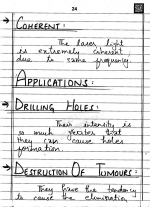 24
→ COHERENT:
The laser light
is extremely coherent
due to same frequency.
APPLICATIONS:
→ DRILLING HOLES:
Their intensity is
so much greater that
they can cause holes
formation.
→ DESTRUCTION OF TUMOURS:
They have the tendency
to cause the elimination